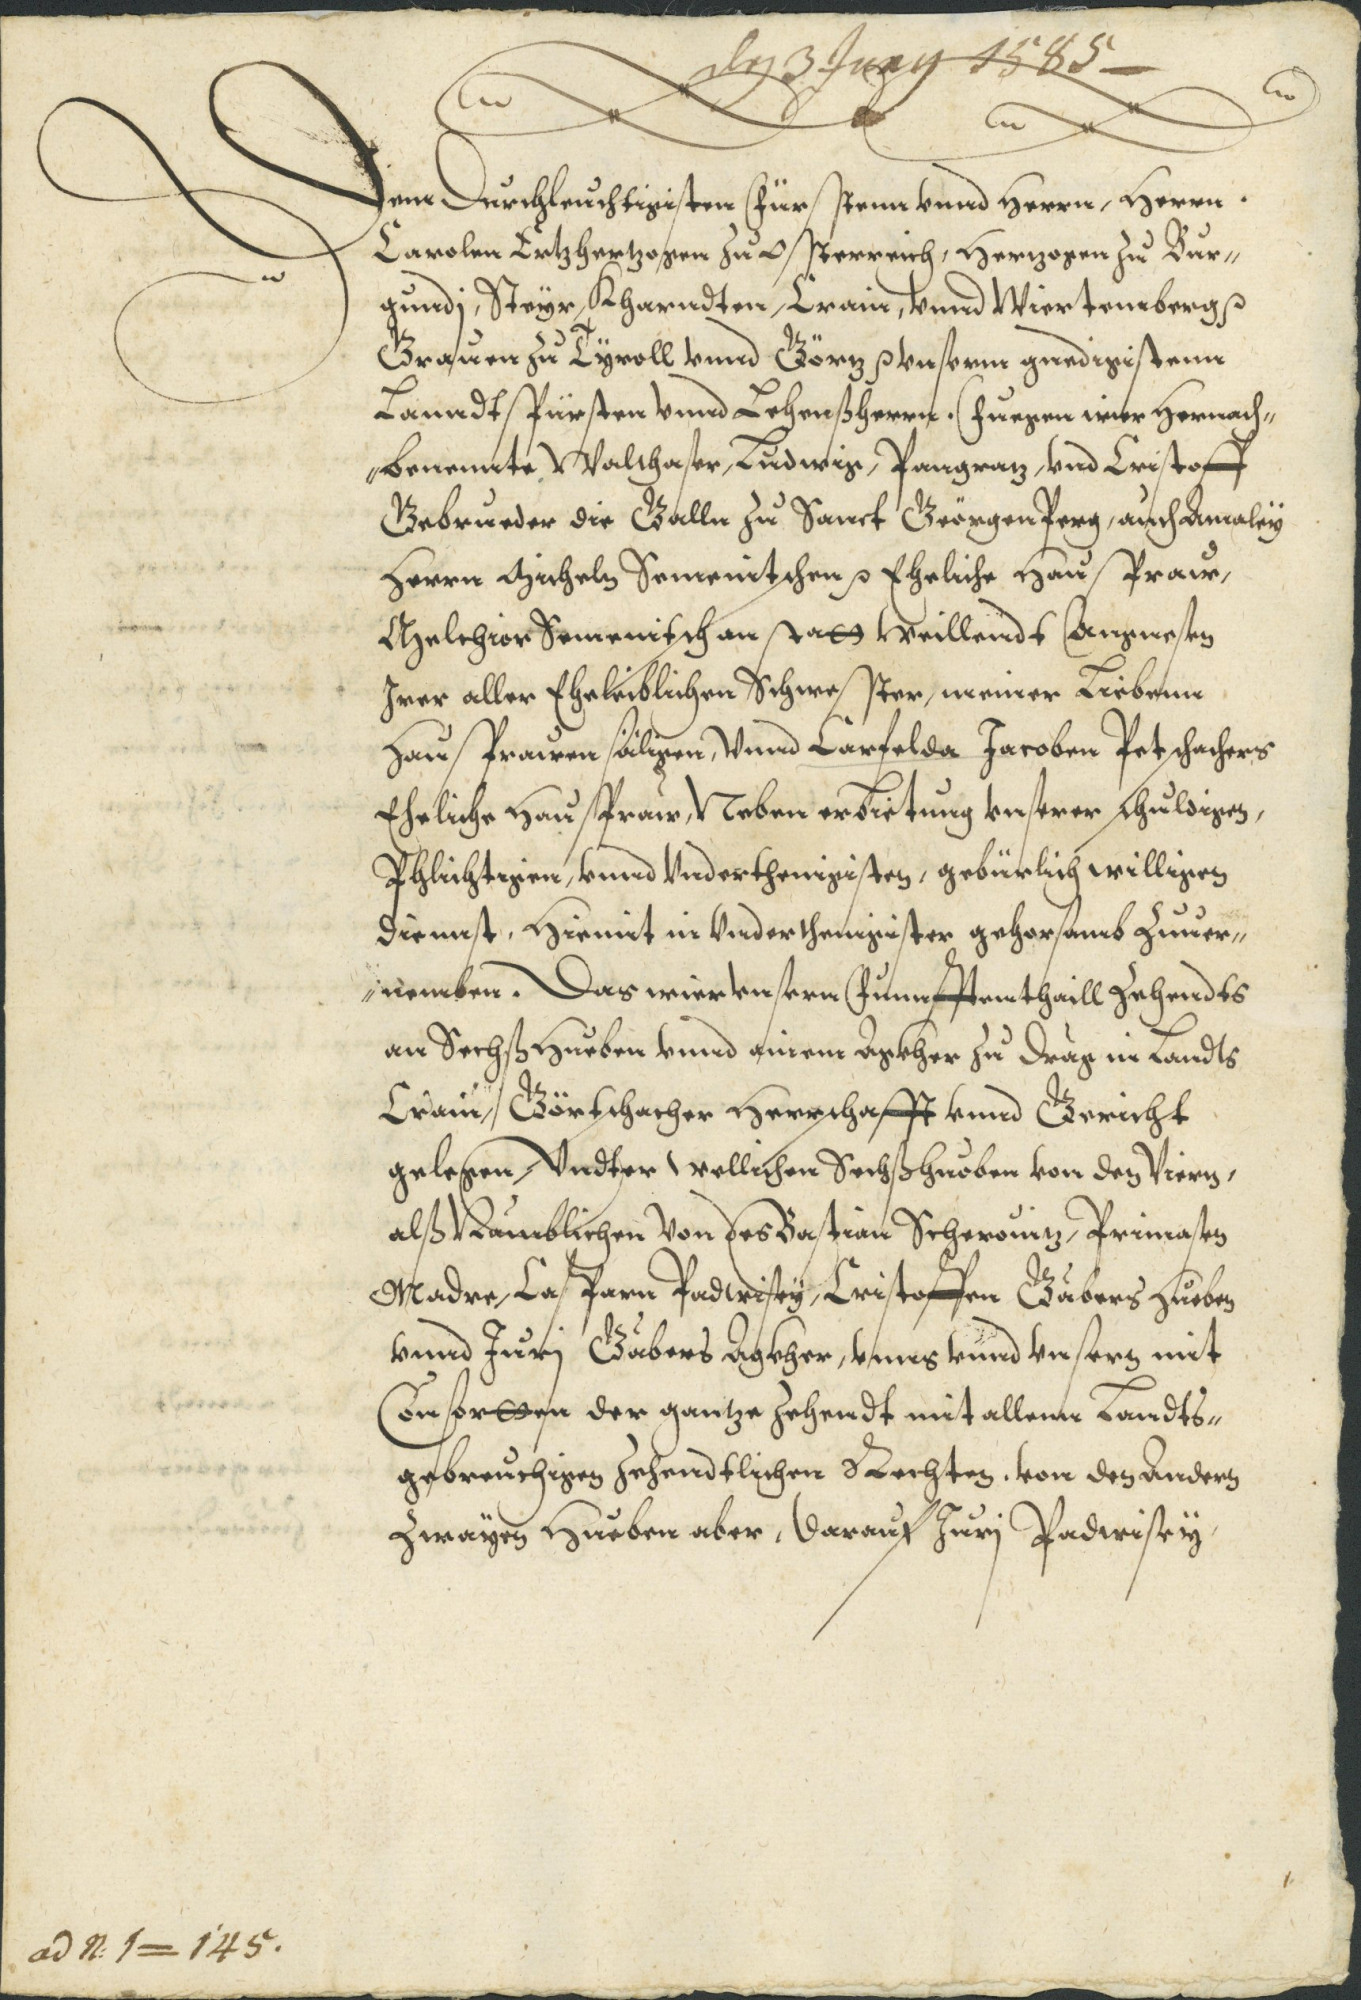 dn 3 Juny 1585
Dem Durchleuchtigisten Fürstenn vnnd Herrn, Herrn
Carolen Ertzhertzogen zu Össterreich, Hertzogen zu Bur„
gundj, Steyr, Kharndten, Crain, vnnd Wiertemberg etc
Grauen zu Tyroll vnnd Görtz etc vnserm gnedigistenn
Lanndtsfürsten vnnd Lehensherrn. Fuegen wier Hernach„
„benennte Walthaser, Ludwig, Pangratz, vnd Cristoff
Gebrueder die Galln zu Sanct Geörgen Perg, auch Amaley
Herrn Micheln Semenitschen etc Eheliche Hausfraw,
Melchior Semenitsch anstatt Weillendt Angnesen
Irer aller Eheleiblichen Schwesster, meiner Liebenn
Hausfrawen säligen, Vnnd Carfelda Jacoben Petschachers
Eheliche Hausfraw, Neben erbietung vnserer schuldigen,
Phlichtigen, vnnd Vnderthenigisten, gebürlich willigen
Diennst, Hiemit in Vnderthenigister gehorsamb Zuuer„
„nemben. Das wier vnsern Funnfftenthaill Zehendts
an Sechss Hueben vnnd ainem Agkher zu Drag in Landts
Crain, Görtschacher Herrschafft vnnd Gericht
gelegen, Vndter wellichen Sechsshueben von den Viern,
alss Namblichen Von des Bastian Scherouitz, Primasen
Madre, Casparn Padwisey, Cristoffen Gäbers Hueben
vnnd Jurj Gäbers Agkher, vnns vnnd vnsern mit
Consortten der gantze Zehendt mit allenn Landts„
gebreuchigen Zehendtlichen Rechten. von den Andern
Zwayen Hueben aber, darauf Jurj Padwisey
ad N. 1 = 145.